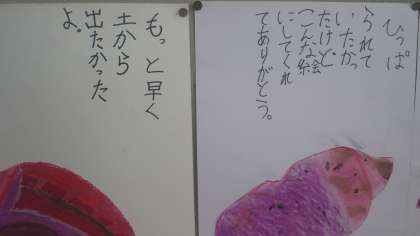 ひっぱ
られて
いたかっ
たけど、
こんな絵
にしてくれ
てありがとう。
もっと早く
土から
出たかった
よ。